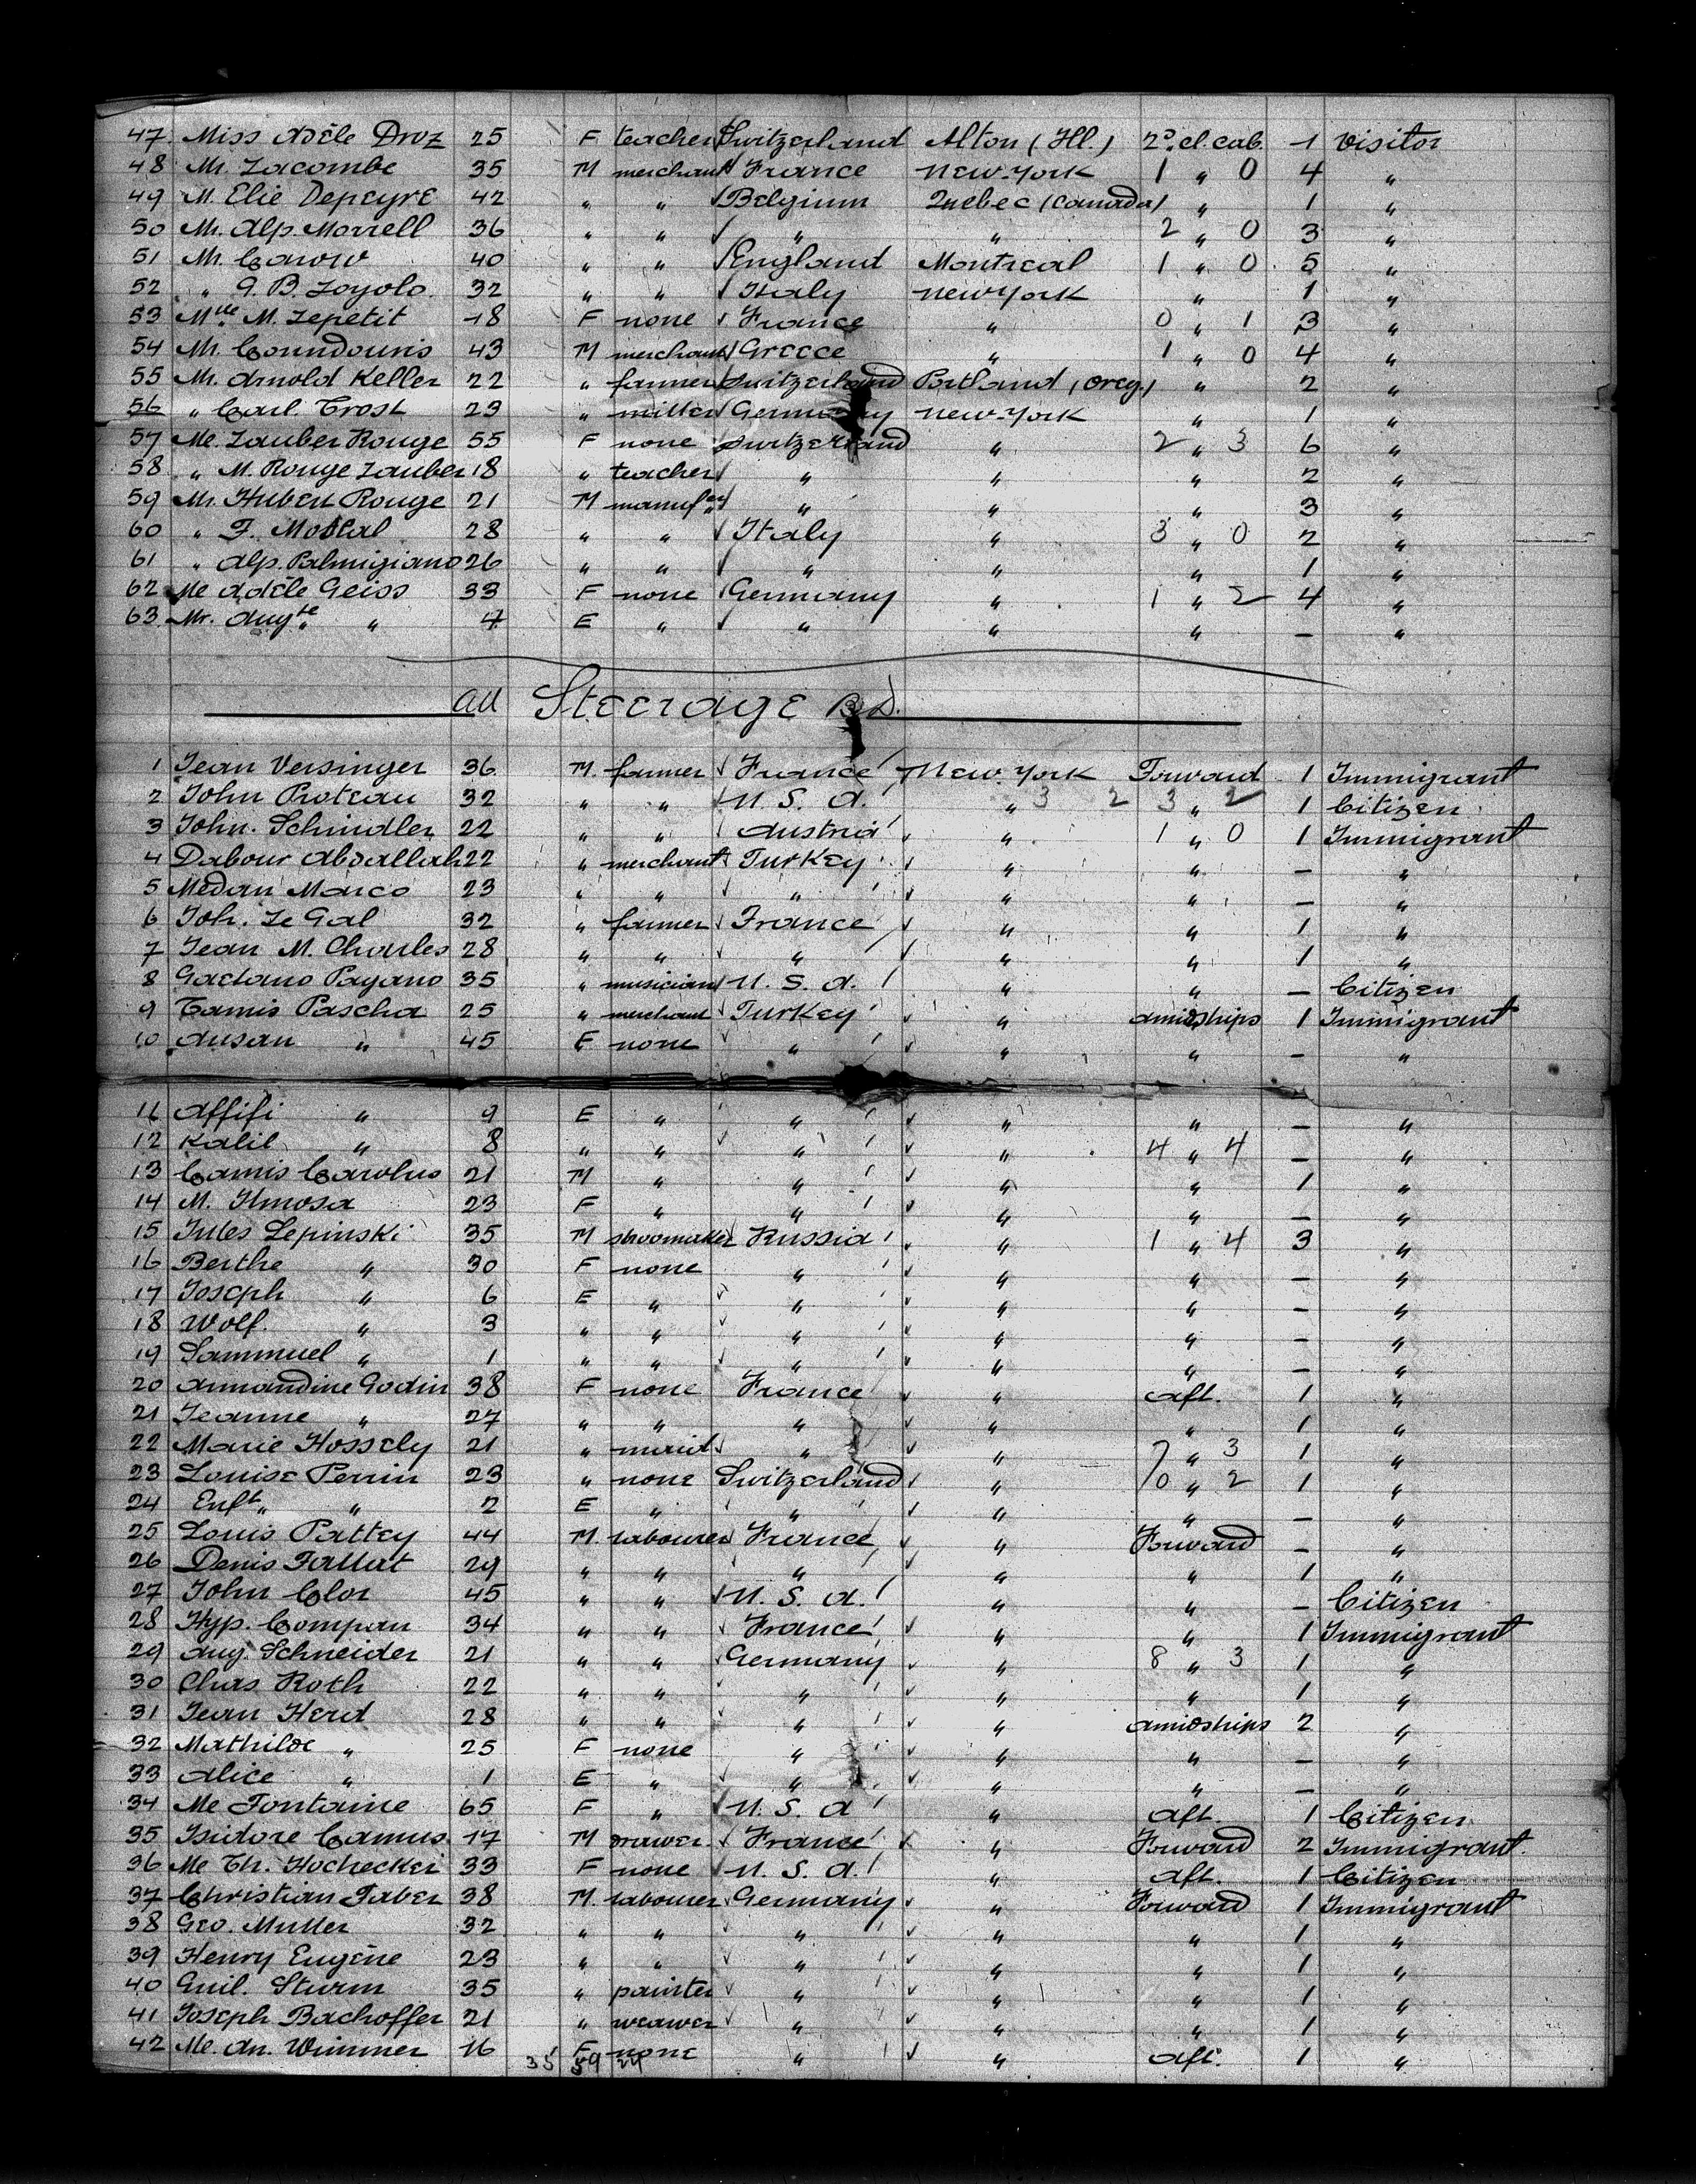 47. Miss Adèle Droz 25 F teacher Switzerland Alton (Ill.) 2d. cl. cab. 1 Visitor
48 M. Lacombe 35 M merchant France New-York 1 " 0 4 "
49 M. Elie Depeyre 42 " " Belgium Quebec (Canada) " 1 "
50 M. Alp. Morrell 36 " " " " 2 " 0 3 "
51 M. Carow 40 " " England Montreal 1 " 0 5 "
52 " G. B. Loyolo 32 " " Italy New York " 1 "
53 Mlle. M. Lepetit 18 F none France " 0 " 1 3 "
54 M. Coundouris 43 M merchant Greece " 1 " 0 4 "
55 M. Arnold Keller 22 " farmer Switzerland Portland (Oreg.) " 2 "
56 " Carl. Trost 29 " miller Germany New-York " 1 "
57 Me. Lauber Rouge 55 F none Switzerland " 2 " 3 6 "
58 " M. Rouge Lauber 18 " teacher " " " 2 "
59 M. Hubert Rouge 21 M manuf " " " 3 "
60 " F. 28 " " Italy " 3 " 0 2 "
61 " Alp. Palmigiano 26 " " " " " 1 "
62 Me Adèle Geiss 33 F none Germany " 1 " 2 4 "
63. Mr. Augte " 4 E " " " " - "
All Steerage
1 Jean Versinger 36 M. farmer France New-York Forward 1 Immigrant
2 John Proteau 32 " " U. S. A. " 3 2 3 " 2 1 Citizen
3 John. Schindler 22 " " Austria " 1 " 0 1 Immigrant
4 Dabour Abdallah 22 " merchant Turkey " " - "
5 Medan Marco 23 " " " " " - "
6 Joh. Le Gal 32 " farmer France " " 1 "
7 Jean M. Charles 28 " " " " " 1 "
8 Gaetano Pagano 35 " musician U. S. A. " " - Citizen
9 Tamis Pascha 25 " merchant Turkey " amidships 1 Immigrant
10 Ausan " 45 F none " " " - "
11 Affifi " 9 E " " " " - "
12 Kalil " 8 " " " " 4 " 4 - "
13 Camis Carolus 21 M " " " " 1 "
14 M. 23 F " " " " - "
15 Jules Lepinski 35 M shoomaker Russia " 1 " 4 3 "
16 Berthe " 30 F none " " " - "
17 Joseph " 6 E " " " " - "
18 Wolf. " 3 " " " " " - "
19 Sammuel " 1 " " " " " - "
20 Armandine Godin 38 F none France " aft. 1 "
21 Jeanne " 27 " " " " " 1 "
22 Marie Hossely 21 " maid " " 7 " 3 1 "
23 Louise Perrin 23 " none Switzerland " 0 " 2 1 "
24 Enft " " 2 E " " " " - "
25 Louis Pattey 44 M. labourer France " Forward - "
26 Denis Fallut 29 " " " " " 1 "
27 John Clor 45 " " U. S. A. " " - Citizen
28 Hyp. Compan 34 " " France " " 1 Immigrant
29 Aug. Schneider 21 " " Germany " 8 " 3 1 "
30 Chas Roth 22 " " " " " 1 "
31 Jean Herd 28 " " " " amidships 2 "
32 Mathilde " 25 F none " " " - "
33 Alice " 1 E " " " " - "
34 Me Fontaine 65 F " U. S. A " aft. 1 Citizen
35 Isidore Camus 17 M drawer France " Forward 2 Immigrant.
36 Me Th. Hochecker 33 F none U. S. A. " aft. 1 Citizen
37 Christian Faber 38 M. labourer Germany " Forward 1 Immigrant
38 Geo. Muller 32 " " " " " 1 "
39 Henry Eugène 23 " " " " " 1 "
40 Guil. Sturm 35 " painter " " " 1 "
41 Joseph Bachoffer 21 " weawer " " " 1 "
42 Me. An. Wimmer 16 F none " " aft. 1 "
35 59 24